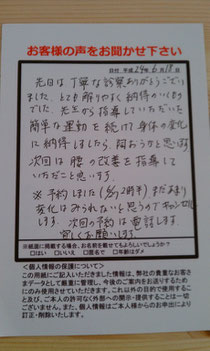 お客様の声をお聞かせ下さい
日付 平成24年6月18日
先日は丁寧な診察ありがとうござい
ました。とても解りやすく納得のいくもの
でした。先生から指導していただいた
簡単な運動を続けて身体の変化
に納得しましたら、伺おうかと思います
次回は腰の改善を指導して
いただこと思います。
※予約しました(6/19 2時半)まだあまり
変化はみられないと思うのでキャンセル
します。次回の予約は電話します。
宜しくお願いします
※紙面に掲載する場合、お名前を載せてもよろしいでしょうか？
□はい □いいえ □匿名 □年齢はダメ
＜個人情報の保護について＞
この用紙にご記入いただきました情報は、弊社の貴重なお客さ
まデータとして厳重に管理し、今後のご案内をお送りするために
のみ使用させていただきます。これ以外の目的で使用するこ
とも及び、ご本人の許可なく外部への開示・提供することは一切
ございません。また、個人情報はご本人様からのお申出により
訂正・削除いたします。